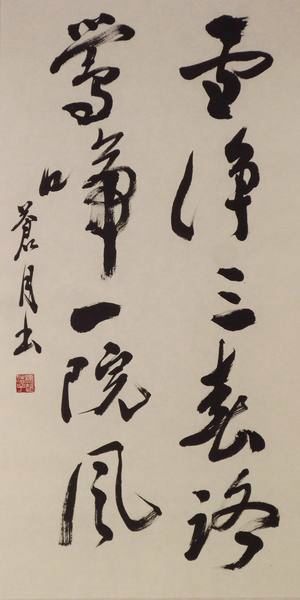 雪淨三春路
鶯啼一院風
蒼月書